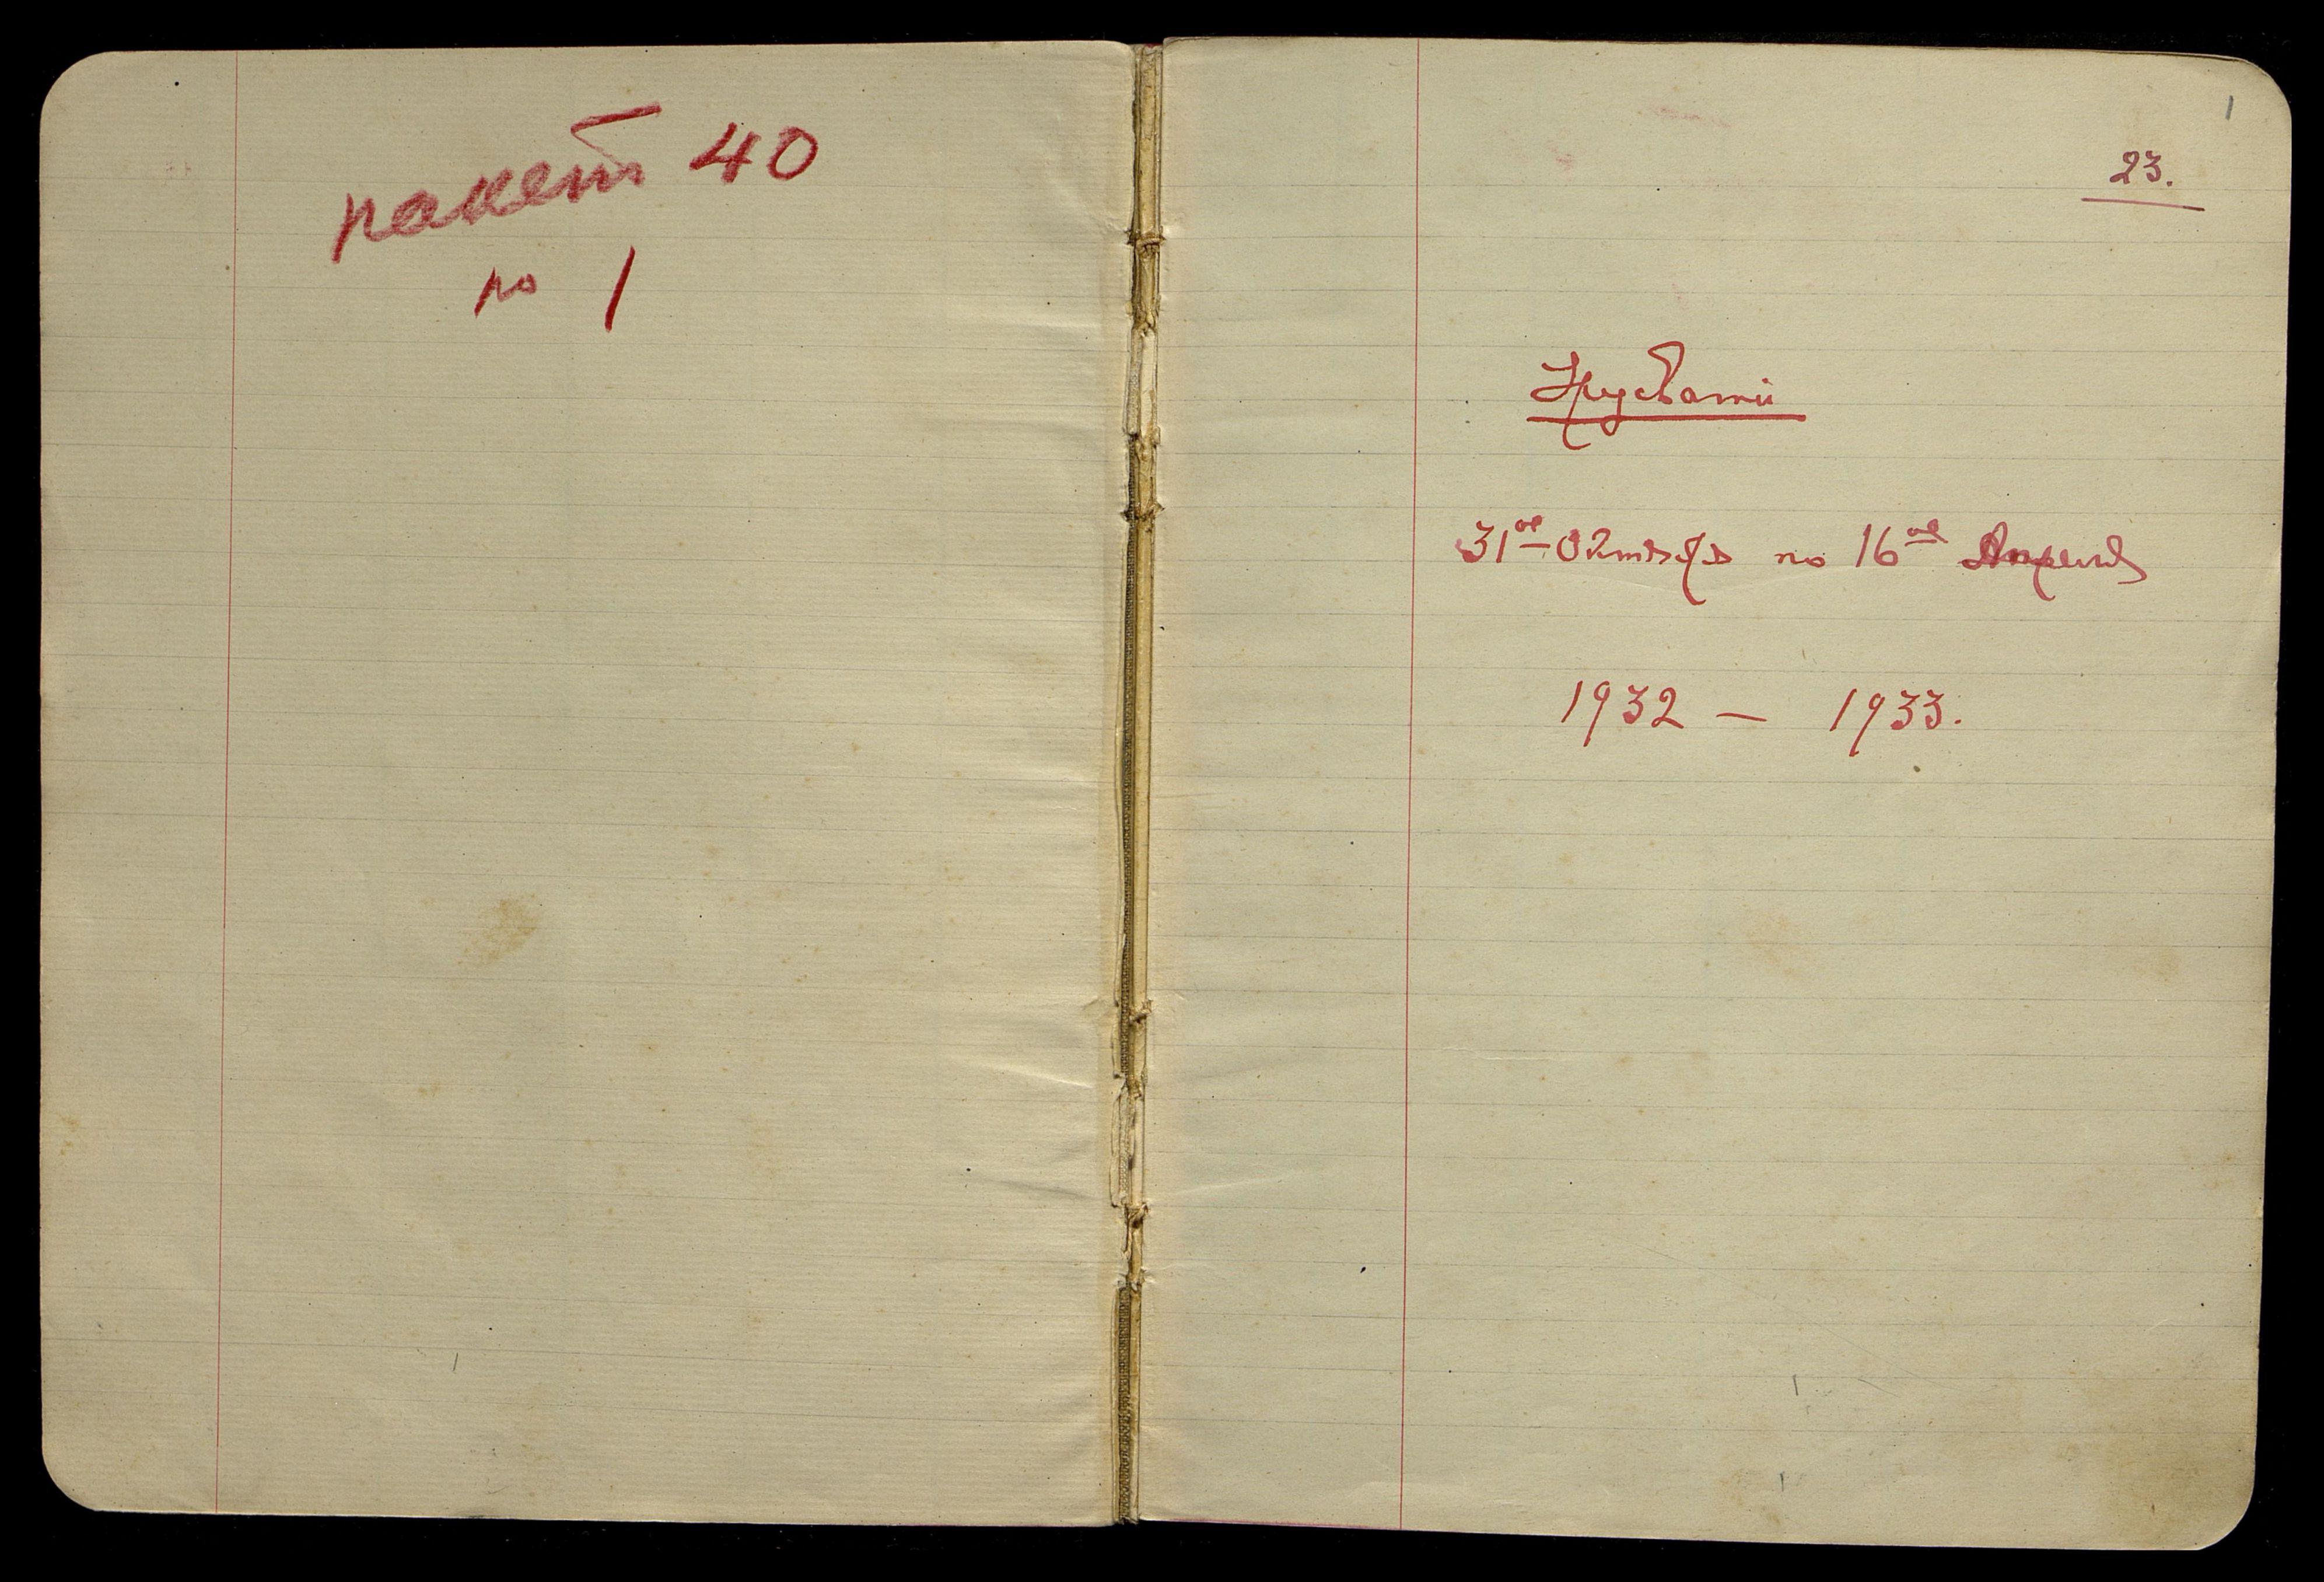 пакет 40
по 1
1
23.
Урусвати
31ое Октября по 16ое Апреля
1932 — 1933.